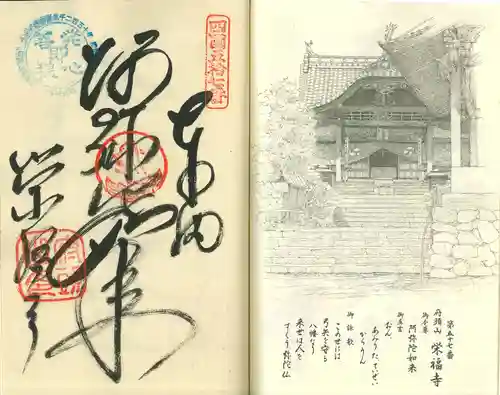 四國五拾七番
奉納
阿弥陀如来
栄福寺
第五十七番
府頭山 栄福寺
御本尊
阿弥陀如来
御真言
おん
あみりた ていせい
からうん
御詠歌
この世には
弓矢を守る
八幡なり
来世は人を
すくう弥陀仏